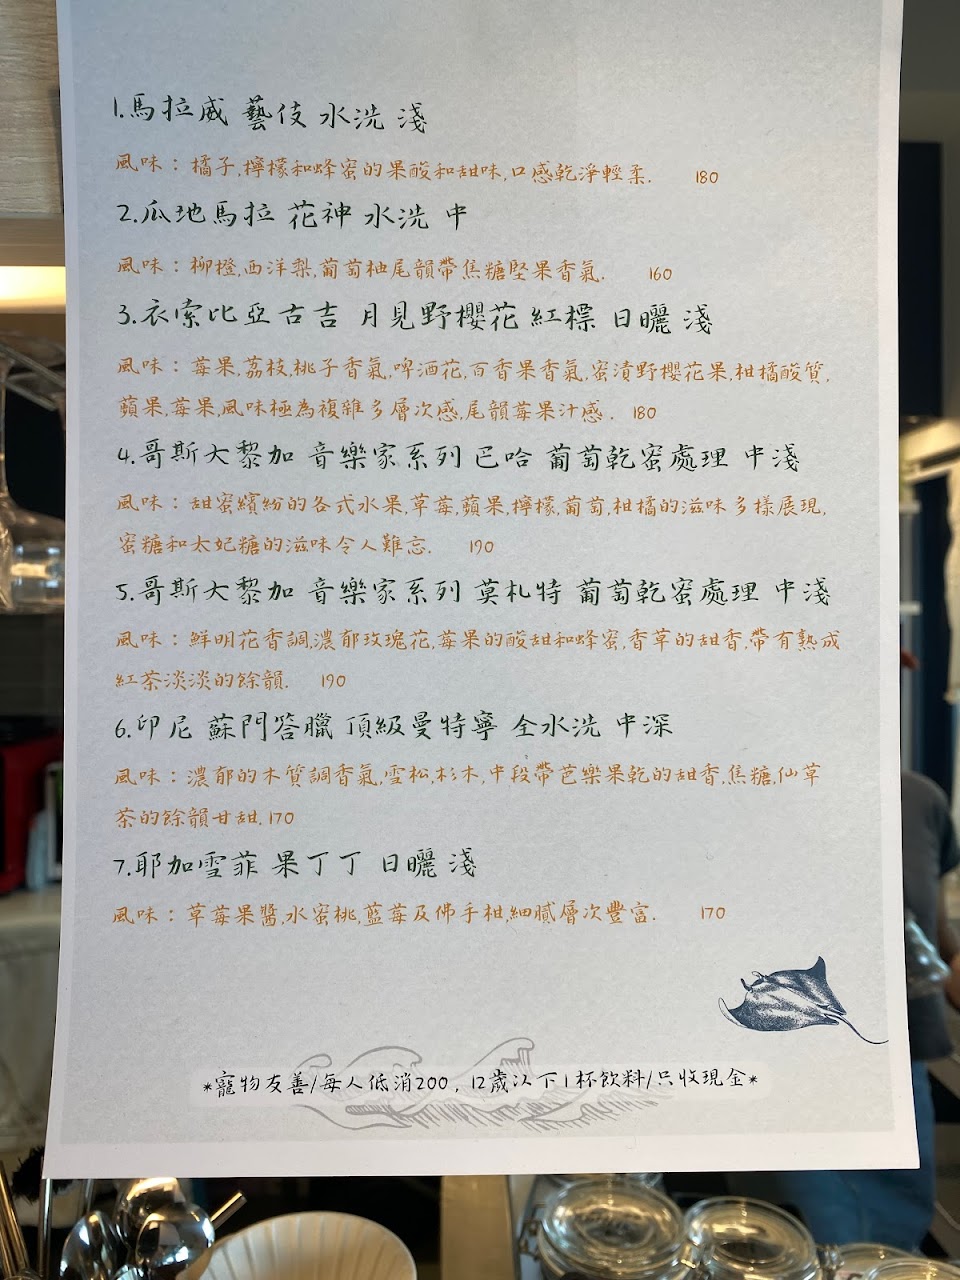 1.馬拉威 藝伎 水洗 淺
風味：橘子,檸檬和蜂蜜的果酸和甜味,口感乾淨輕柔. 180
2.瓜地馬拉 花神 水洗 中
風味：柳橙,西洋梨,葡萄柚尾韻帶焦糖堅果香氣. 160
3.衣索比亞古吉 月見野櫻花 紅標 日曬 淺
風味：莓果,荔枝,桃子香氣,啤酒花,百香果香氣,蜜漬野櫻花果,柑橘酸質,
蘋果,莓果,風味極為複雜多層次感,尾韻莓果汁感. 180
4.哥斯大黎加 音樂家系列 巴哈 葡萄乾蜜處理 中淺
風味：甜蜜繽紛的各式水果,草莓,蘋果,檸檬,葡萄,柑橘的滋味多樣展現,
蜜糖和太妃糖的滋味令人難忘. 190
5.哥斯大黎加 音樂家系列 莫札特 葡萄乾蜜處理 中淺
風味：鮮明花香調,濃郁玫瑰花,莓果的酸甜和蜂蜜,香草的甜香,帶有熟成
紅茶淡淡的餘韻. 190
6.印尼 蘇門答臘 頂級曼特寧 全水洗 中深
風味：濃郁的木質調香氣,雪松,杉木,中段帶芭樂果乾的甜香.焦糖,仙草
茶的餘韻甘甜. 170
7.耶加雪菲 果丁丁 日曬 淺
風味：草莓果醬,水蜜桃,藍莓及佛手柑,細膩層次豐富. 170
*寵物友善/每人低消200，12歲以下1杯飲料/只收現金*